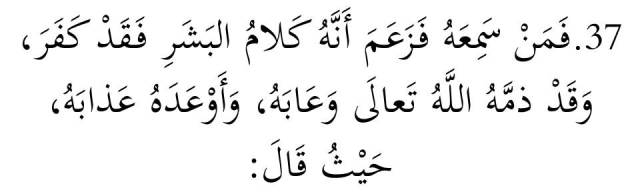 37.فَمَنْ سَمِعَهُ فَزَعَمَ أَنَّهُ كَلامُ البَشَرِ فَقَدْ كَفَرَ،
وَقَدْ ذمَّهُ اللَّهُ تَعالَى وَعَابَهُ، وَأَوْعَدَهُ عَذابَهُ،
حَيْثُ قَالَ: